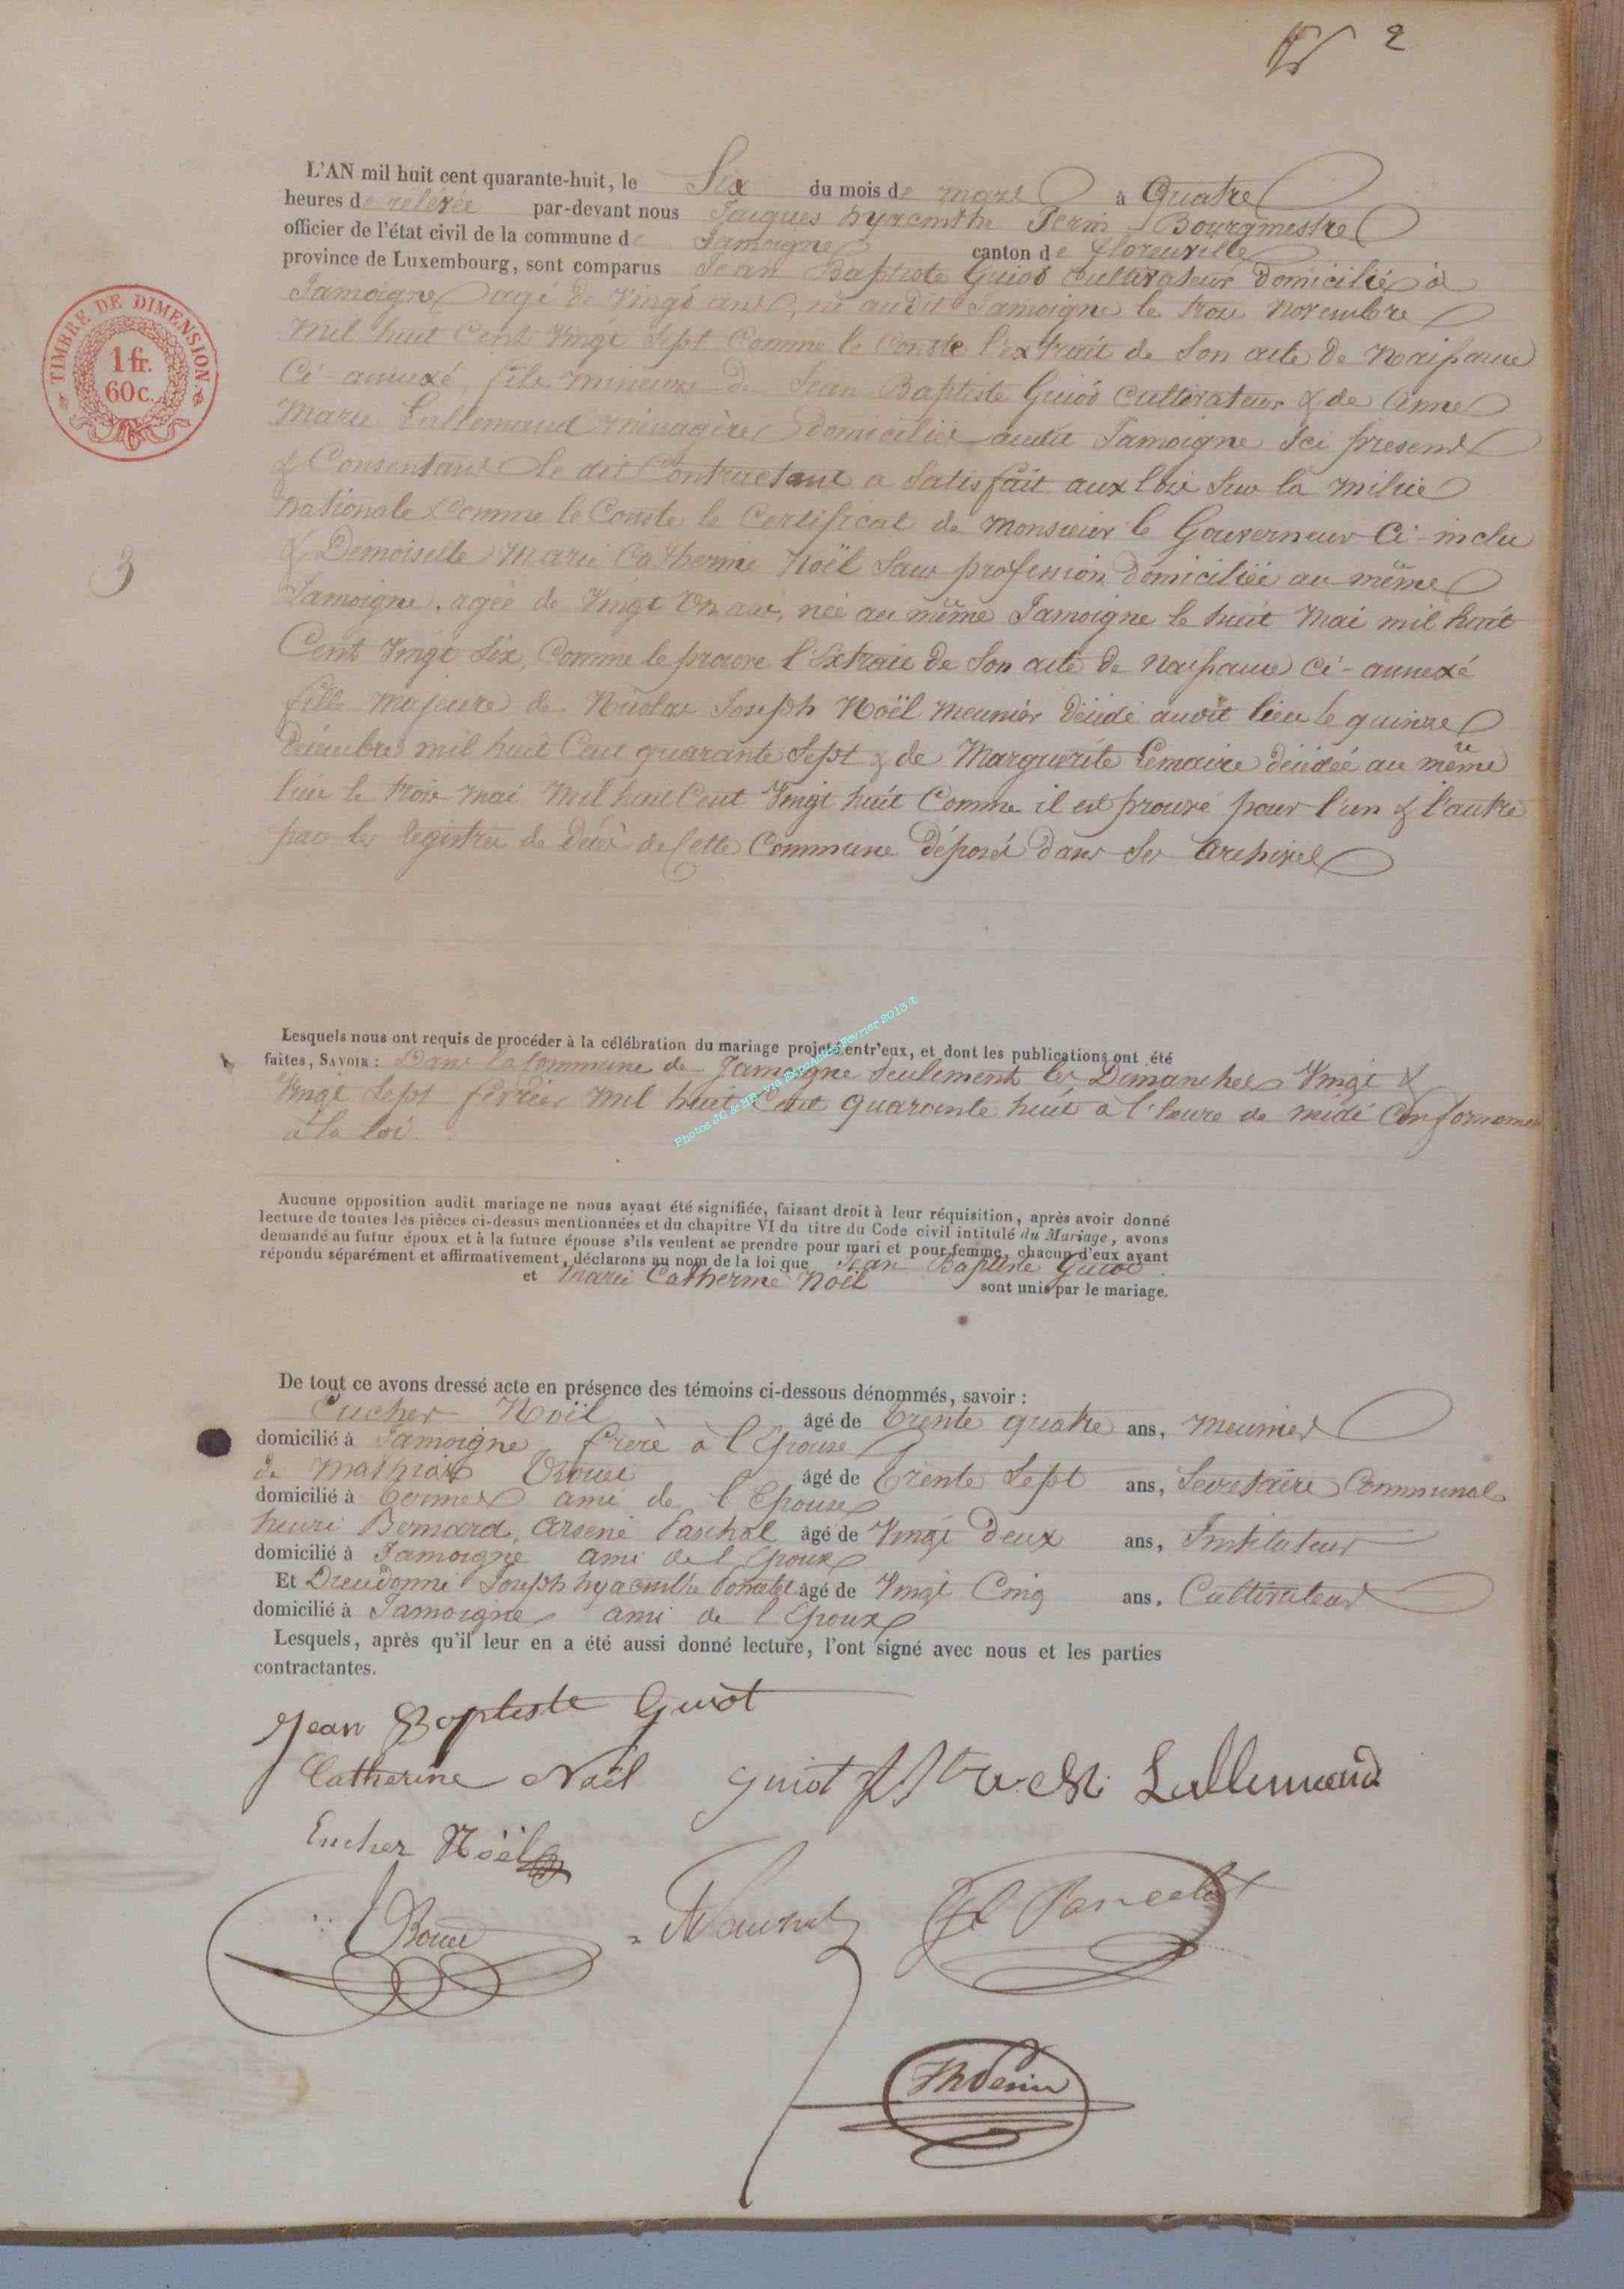 2
L'AN mil huit cent quarante-huit, le Six du mois de mars à Quatre
heures de relevée par-devant nous Jacques hyacinthe Perin Bourgmestre
officier de l'état civil de la commune de Jamoigne canton de floreuville
province de Luxembourg, sont comparus Jean Baptiste Guiot cultivateur domicilié à
Jamoigne agé de Vingt ans, né audit Jamoigne le trois Novembre
Mil huit Cent Vingt Sept Comme le Conste l'extrait de Son acte de Naissance
Ci annexé, fils mineur de Jean Baptiste Guiot Cultivateur & de Anne
Marie Lallemand ménagère domiciliés audit Jamoigne Ici présents
& Consentants le dit Contractant a Satisfait aux loix Sur la milice
Nationale Comme le Conste le Certificat de Monsieur le Gouverneur Ci-inclu
& Demoiselle Marie Catherine Noël Sans profession domiciliée au même
Jamoigne, agée de Vingt Un ans, née au même Jamoigne le huit Mai mil huit
Cent Vingt Six, Comme le prouve l'Extrait de Son acte de Naissance Ci-annexé
fille majeure de Nicolas Joseph Noël Meunier décédé audit lieu le quinze
Décembre mil huit Cent quarante Sept & de Marguerite Lemaire décédée au même
lieu le trois mai Mil huit Cent Vingt huit Comme il est prouvé pour l'un & l'autre
par les registres de décès de Cette Commune déposés dans Ses Archives
3
TIMBRE DE DIMENSION
1 fr.
60 c.
Lesquels nous ont requis de procéder à la célébration du mariage projeté entr'eux, et dont les publications ont été
faites, SAVOIR : Dans la Commune de Jamoigne Seulement les Dimanches Vingt &
Vingt Sept février Mil huit Cent quarante huit à l'heure de midi Conformement
à la loi
Photos JC & HB via Expoactes Février 2013 ©
Aucune opposition audit mariage ne nous ayant été signifiée, faisant droit à leur réquisition, après avoir donné
lecture de toutes les pièces ci-dessus mentionnées et du chapitre VI du titre du Code civil intitulé du Mariage, avons
demandé au futur époux et à la future épouse s'ils veulent se prendre pour mari et pour femme, chacun d'eux ayant
répondu séparément et affirmativement, déclarons au nom de la loi que Jean Baptiste Guiot
et Marie Catherine Noël sont unis par le mariage.
De tout ce avons dressé acte en présence des témoins ci-dessous dénommés, savoir :
Eucher Noël âgé de trente quatre ans, Meunier
domicilié à Jamoigne frère à l'Epouse
de Mathias âgé de trente Sept ans, Secretaire Communal
domicilié à Termes ami de l'Epouse
henri Bernard Arsène Paschal âgé de Vingt deux ans, Instituteur
domicilié à Jamoigne ami de l'Epoux
Et Dieudonné Joseph hyacinthe Poncelet âgé de Vingt Cinq ans, Cultivateur
domicilié à Jamoigne ami de l'Epoux
Lesquels, après qu'il leur en a été aussi donné lecture, l'ont signé avec nous et les parties
contractantes.
Jean Baptiste Guiot
Catherine Noël Guiot Lallemand
Eucher Noël
Poncelet
Perin